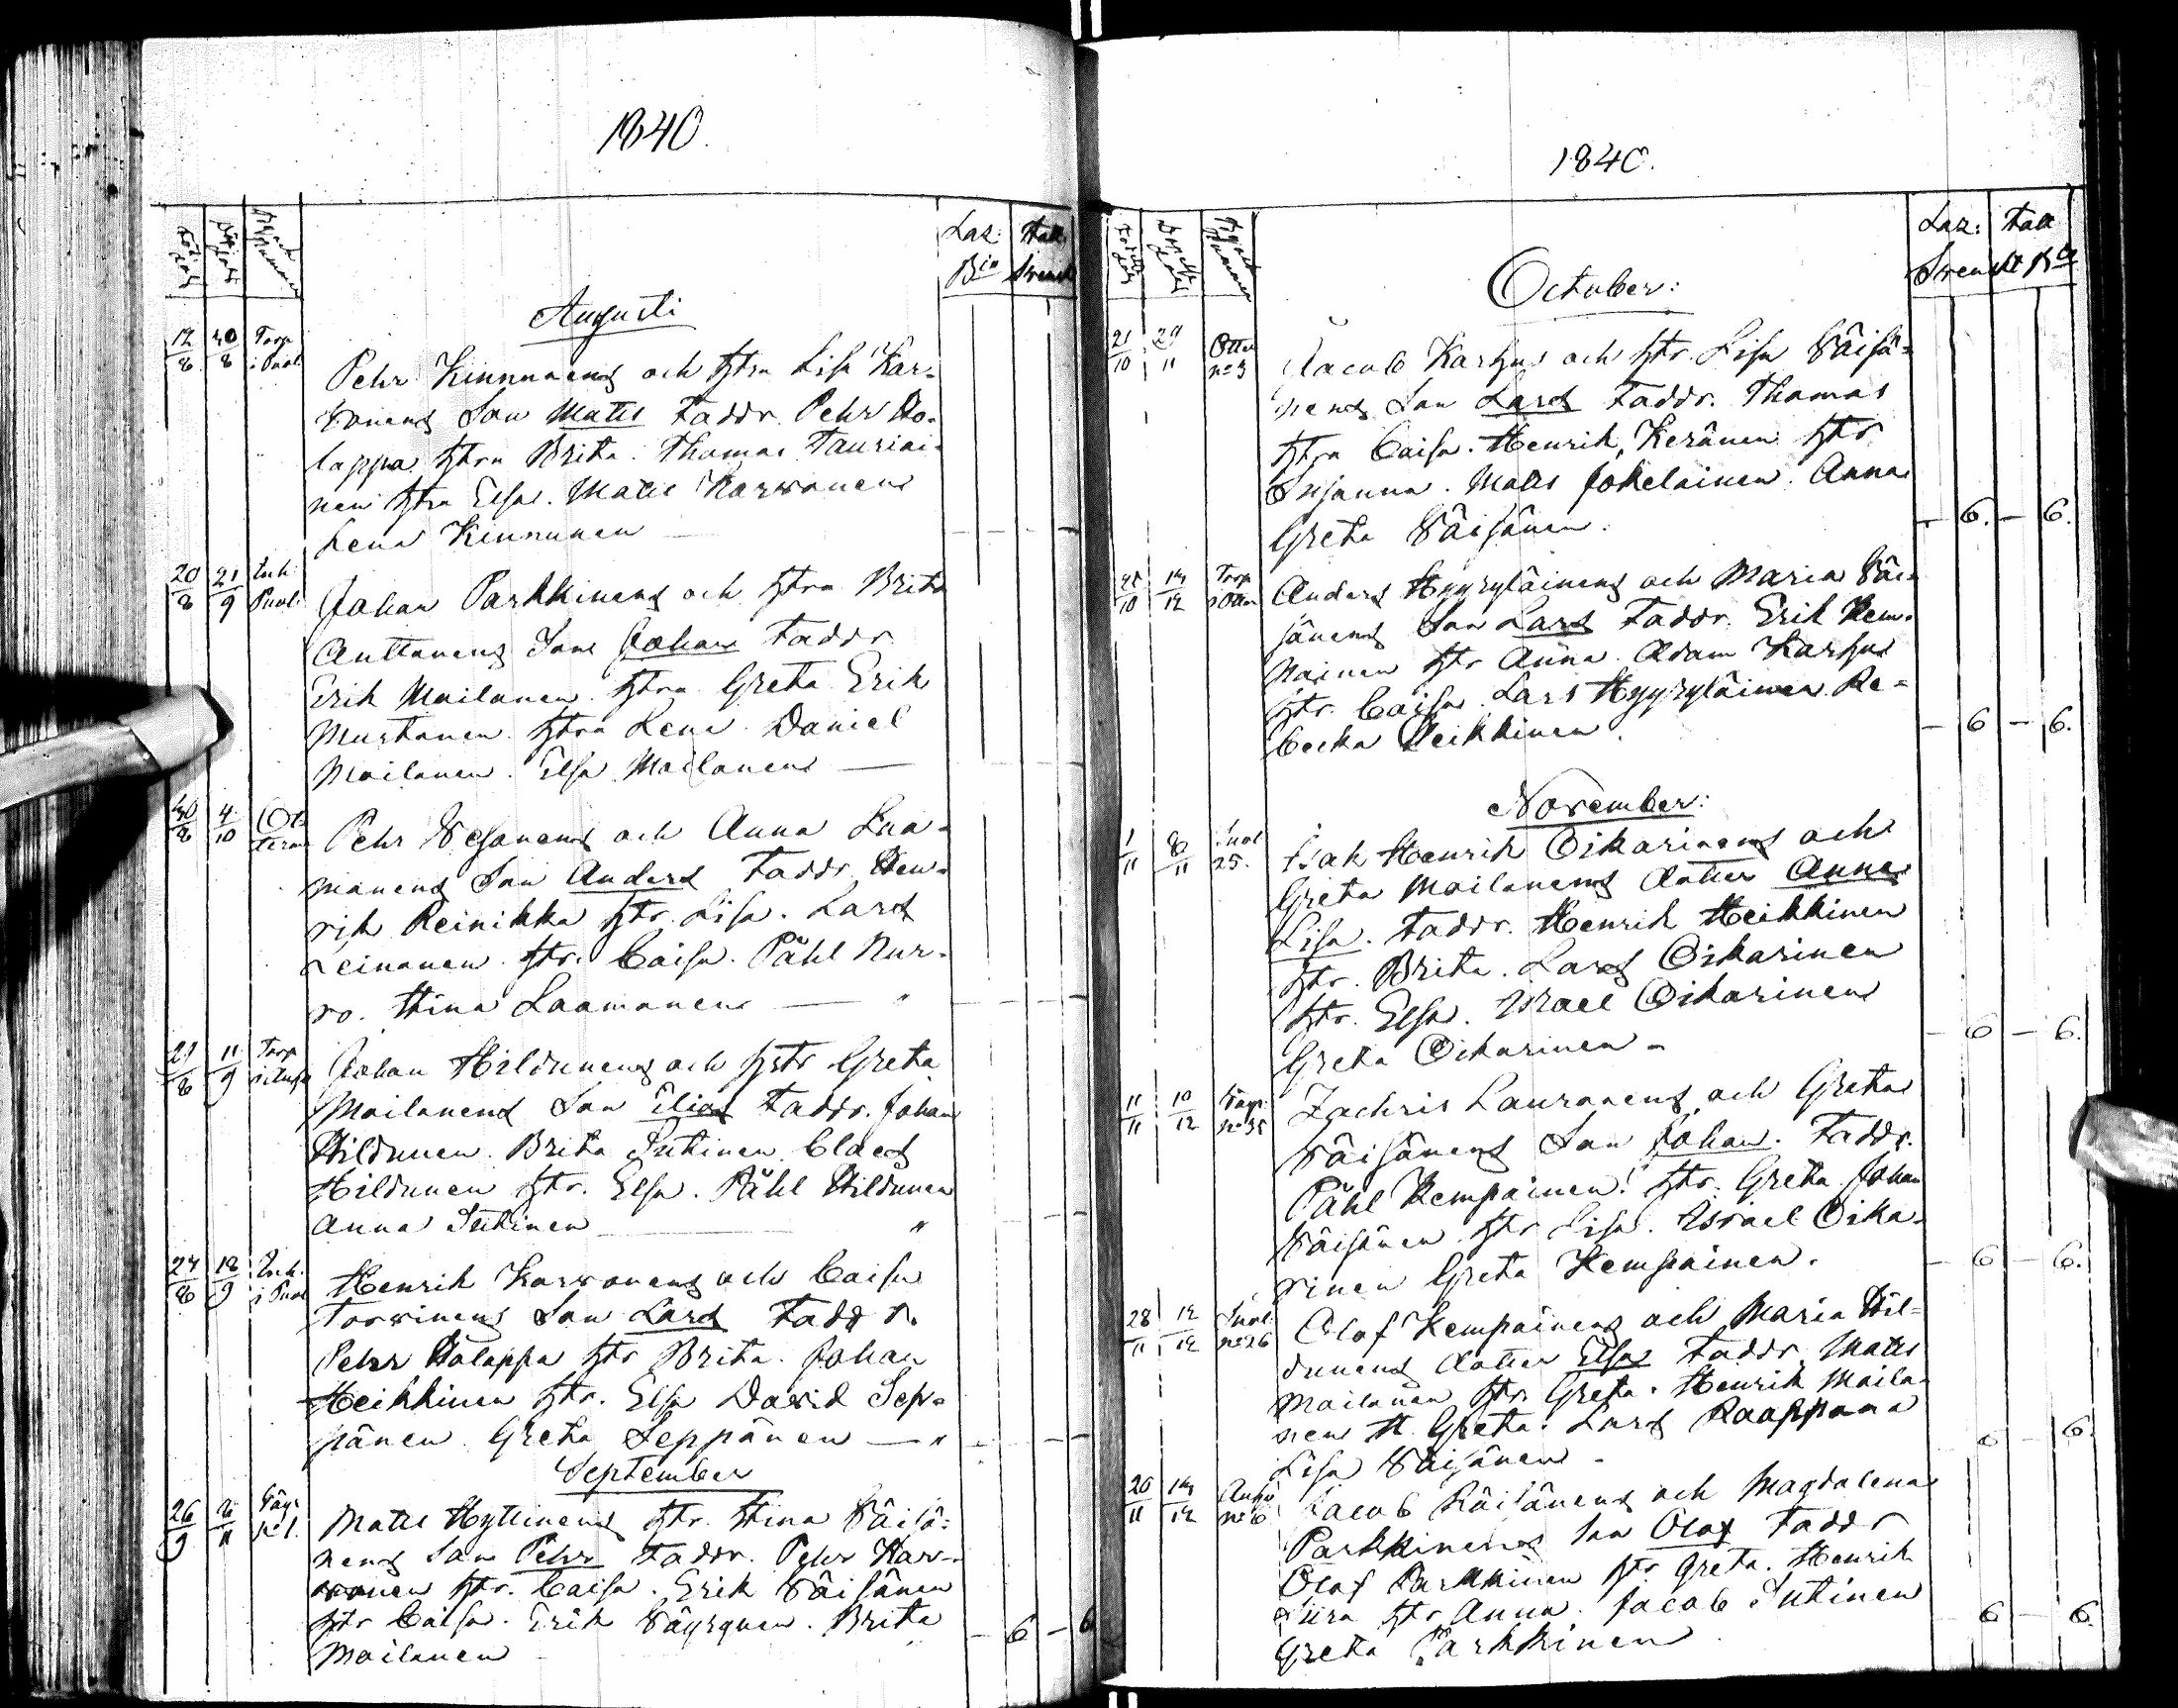 1840.
Laz: Fatt
Bio Svenst
Augusti
12/8 30/8 Torp i Puol.
Pehr Kinnunens och Hstr Lisa Kar-
vonens Son Matts Faddr. Pehr Ho-
lappa Hstr Brita. Thomas Tauriai-
nen Hstr Elsa. Matts Karvonen
Lena Kinnunen
20/8 21/9 Inh. Puol.
Johan Parkkinens och Hstr Brita
Anttonens Son Johan Faddr
Erik Mailanen Hstr Greta Erik
Mustonen Hstr Lena Daniel
Mailanen. Elsa Mailanen
30/8 4/10 Ot-term
Pehr Wesanens och Anna Laa-
manens Son Anders Faddr Hen-
rik Reinikka Hstr. Lisa. Lars
Leinonen Hstr. Caisa. Påhl Nur-
ro. Stina Laamanen
21/8 11/9 Torp
Johan Hildunens och Hstr Greta
Mailanens Son Elias Faddr. Johan
Hildunen. Brita Sutinen. Claes
Hildunen Hstr. Elsa. Påhl Hildunen
Anna Sutinen
27/8 12/9 Inh. i Puol
Henrik Karvonens och Caisa
Torvinens Son Lars Faddr.
Pehr Holappa Hstr Brita. Johan
Heikkinen Hstr. Elsa David Sep-
pänen. Greta Seppänen
September
26/9 8/11 Väyr No 1.
Matts Hyttinens Hstr. Stina Väisä-
nens Son Pehr Faddr. Pehr Kar-
vonen Hstr. Caisa. Erik Väisänen
Hstr Caisa. Erik Väyrynen. Brita
Mailanen
- 6 - 6
1840.
Laz: Fatt
Svenskt Bio
October:
21/10 29/11 Otter no 3
Jacob Karhus och Hstr. Lisa Väisä-
nens Son Lars Faddr. Thomas
Hstr Caisa. Henrik Keränen Hstr
Susanna. Matts Jokelainen. Anna
Greta Väisänen.
- 6. - 6.
25/10 13/12 Torp i Otter
Anders Hyyryläinens och Maria Väi-
sänens Son Lars Faddr. Erik Kem-
painen Hstr Anna. Adam Karhu
Hstr. Caisa. Lars Hyyryläinen Re-
becka Heikkinen.
- 6 - 6.
November:
1/11 8/11 Puol 25.
Isak Henrik Oikarinens och
Greta Mailanens dotter Anna
Lisa. Faddr. Henrik Heikkinen
Hstr. Brita. Lars Oikarinen
Hstr. Elsa. Israel Oikarinen
Greta Oikarinen -
- 6 - 6.
11/11 10/12 Väyr. No 35
Zachris Lauronens och Greta
Väisänens Son Johan. Faddr.
Påhl Kempainen. Hstr. Greta Johan
Väisänen Hstr Lisa. Israel Oika-
rinen Greta Kempainen.
- 6 - 6.
28/11 12/12 Puol No 26
Olof Kempainens och Maria Hil-
dunens dotter Elsa Faddr. Matts
Mailanen Hstr. Greta. Henrik Maila-
nen H. Greta. Lars Raappana
Lisa Väisänen -
6 - 6.
20/11 13/12 no 6
Jacob Räisänens och Magdalena
Parkkinens Son Olof Faddr
Olof Parkkinen Hstr Greta. Henrik
Hstr Anna. Jacob Sutinen
Greta Parkkinen
- 6 - 6.